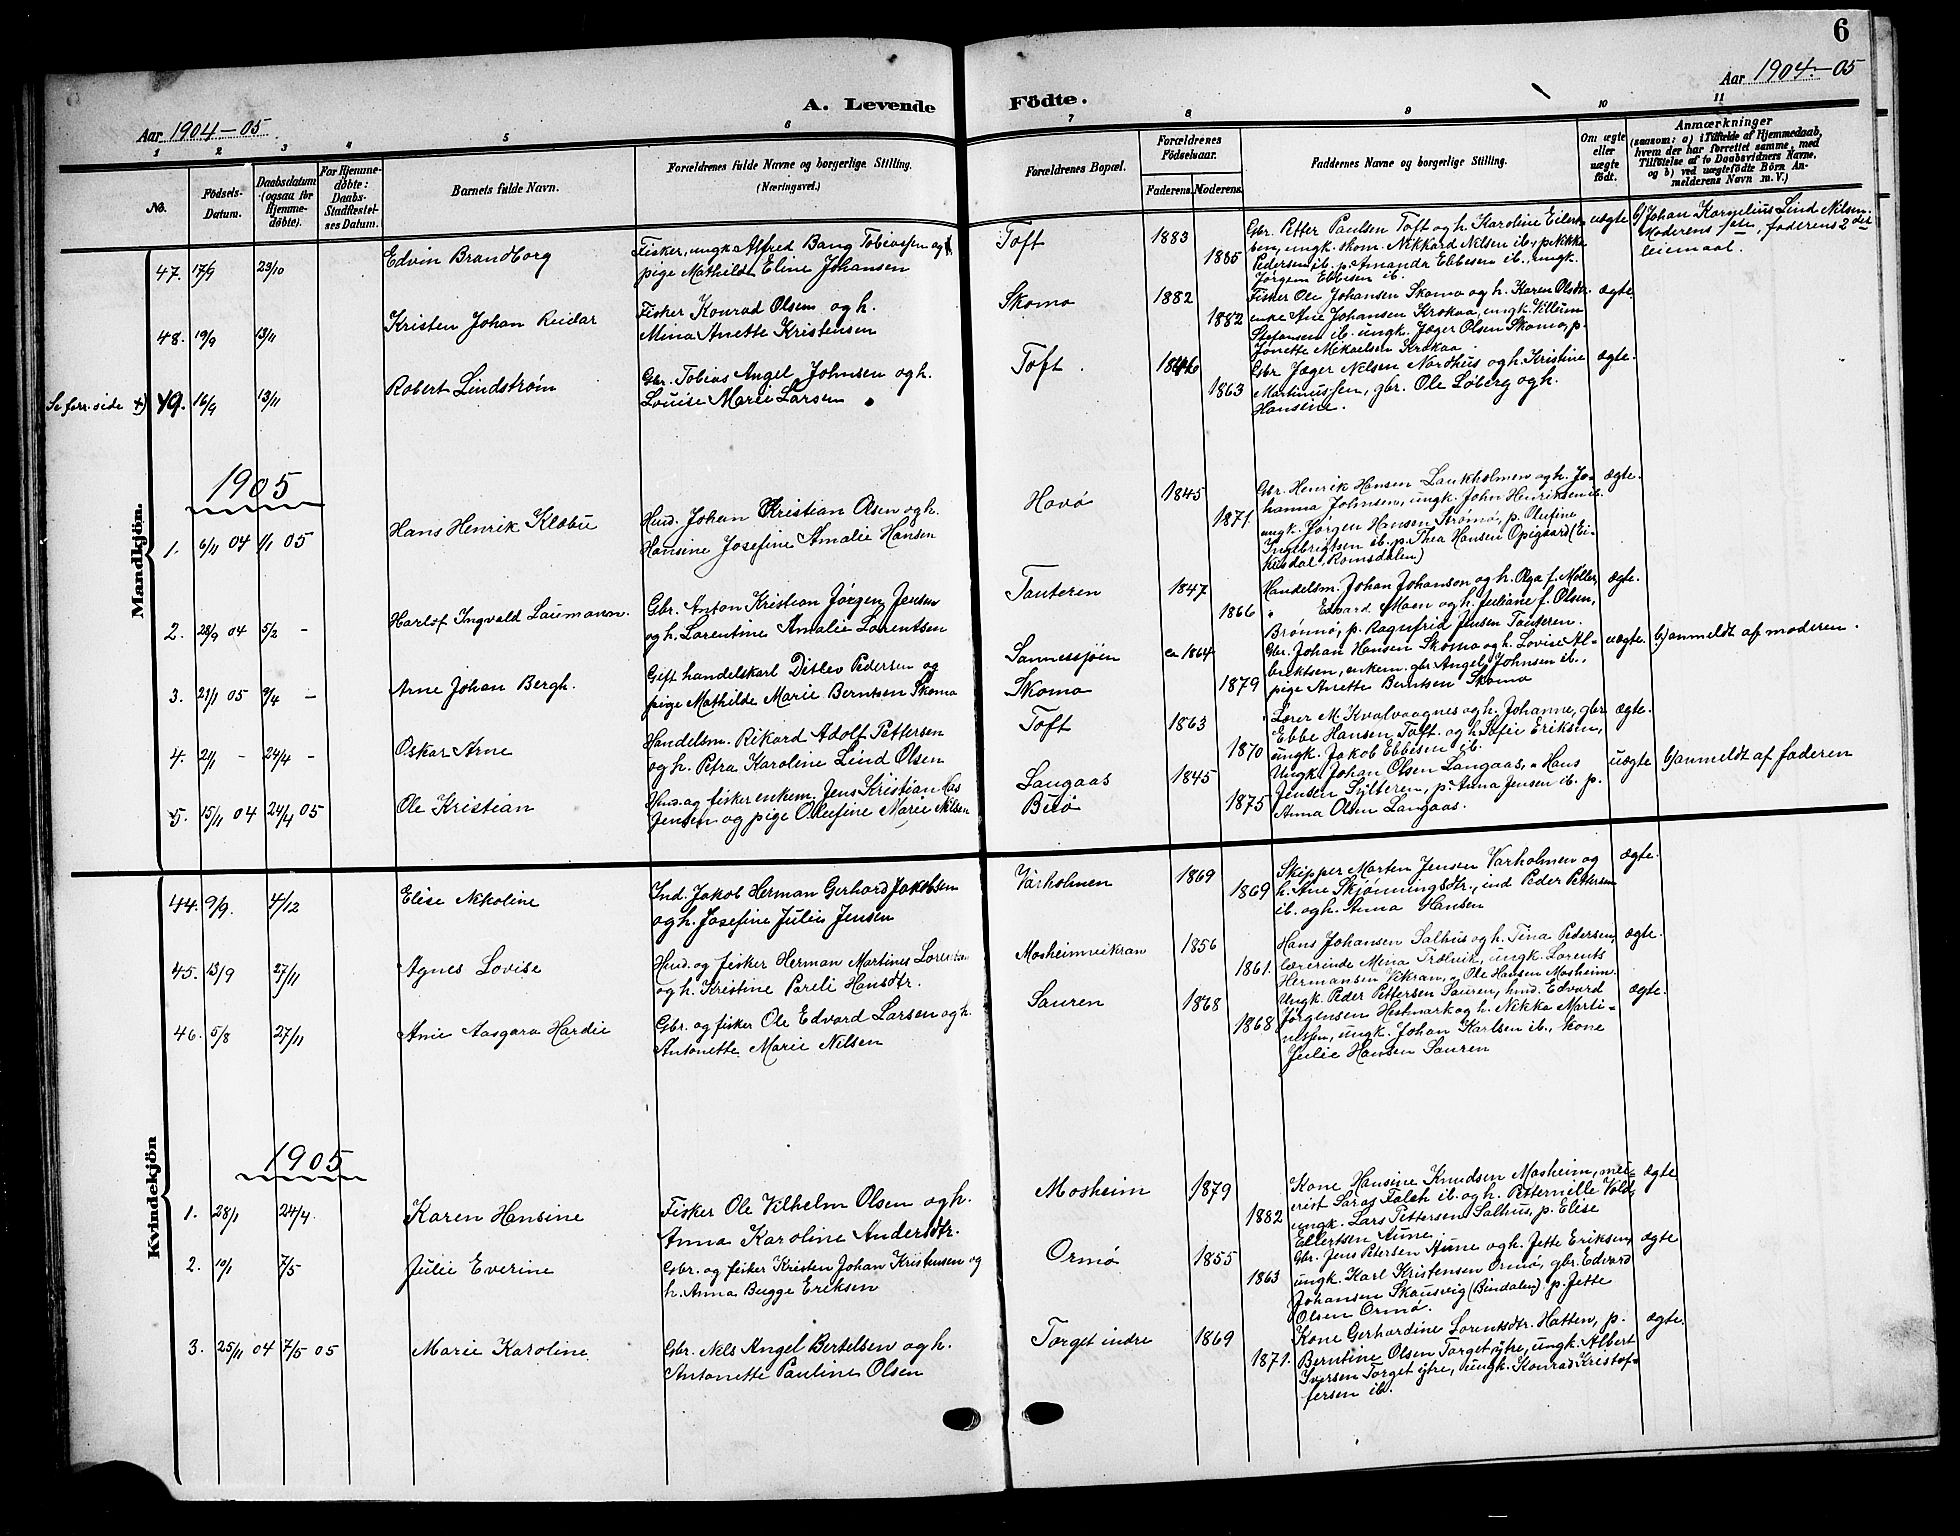 6
Aar 1904-05
A. Levende Födte.
Aar 1904-05
1 2 3 4 5 6 7 8 9 10 11
No.
Födsels-Datum.
Daabsdatum (ogsaa for Hjemmedöbte).
For Hjemmedöbte: Daabs-Stadfæstelses Datum.
Barnets fulde Navn.
Forældrenes fulde Navne og borgerlige Stilling.
(Næringsvei.)
Forældrenes Bopæl.
Forældrenes Födselsaar.
Faderens. Moderens.
Faddernes Navne og borgerlige Stilling.
Om ægte eller uægte födt.
Anmærkninger
(saasom: a) i Tilfælde af Hjemmedaab, hvem der har forrettet samme, med Tilföielse af to Daabsvidners Navne, og b) ved uægtefödte Börn Anmelderens Navn m. V.)
Mandkjön.
47. 17/9 23/10 Edvin Brandborg
Fisker, ungk Alfred Bang Tobiassen og
pige Mathilde Eline Johansen
Toft 1883 1885
Gbr. Petter Paulsen Toft og h. Karoline Eilert-
sen, ungk. skom. Nikkard Nilsen ib., p. Nikka
Pedersen ib. p. Amanda Ebbesen ib., ungk.
Jørgen Ebbesen ib.
uægte
b) Johan Kornelius Lind Nilsen.
Moderens 1ste, faderens 2det
leiemaal.
48. 19/9 13/11 Kristen Johan Reidar
Fisker Konrad Olsen og h.
Mina Anette Kristensen
Skomo 1882 1882
Fisker Ole Johansen Skomo og h. Karen Olsdtr.
enke Ane Johansen Krokaa, ungk. Villum
Stefansen ib. ungk. Jæger Olsen Skomo, p.
Jonette Mikaelsen Krokaa.
ægte
Se forr. side +) 49. 16/9 13/11 Robert Lindstrøm
Gbr. Tobias Angel Johnsen og h.
Louise Marie Larsen
Toft. 1863
Gbr Jæger Nilsen Nordhus og h. Kristine
Martinussen, gbr. Ole Løberg og h.
Hansine.
ægte.
1905
1. 6/11 04 1/1 05 Hans Henrik Klæbu
Hmd. Johan Kristian Olsen og h.
Hansine Josefine Amalie Hansen
Havø 1845 1871.
Gbr. Henrik Hansen Laukholmen og h. Jo-
hanna Johnsen, ungk. John Henriksen ib.
ungk. Jørgen Hansen Strømø, p. Olufine
Ingebrigtsen ib. p. Thea Hansen Opigaard (Ei-
kisdal Romsdalen)
ægte.
2. 28/9 04 5/2 - Harlof Ingvald Laumann.
Gbr. Anton Kristian Jörgen Jensen
og h. Lorentine Amalie Lorentsen
Tauteren 1847 1866
Handelsm. Johan Johanson og h. Olga f. Møller,
" Edvard Moen og h. Juliane f. Olsen,
Brønnø, p. Ragnfrid Jensen Tauteren.
ægte.
3. 21/1 05 9/4 - Arne Johan Bergh.
Gift handelskarl Ditlev Pedersen og
pige Mathilde Marie Berntsen Skomo
Sannessjøen
Skomo ca 1864 1879
Gbr. Johan Hansen Skomo og h. Lovise Al-
briktsen, enkem. gbr Angel Johnsen ib.,
pige Anette Berntsen Skomo
uægte. b) anmeldt af moderen.
4. 21/1 - 24/4 - Oskar Arne
Handelsm. Rikard Adolf Pettersen
og h. Petra Karoline Lind Olsen
Toft 1863 1870
Lærer M. Kvalvaagnes og h. Johanne, gbr
Ebbe Hansen Toft. og h. Sofie Eriksen,
ungk. Jakob Ebbesen ib.
ægte.
5. 15/11 04 24/4 05 Ole Kristian
Hmd. og fisker enkem. Jens Kristian Aas
Jensen og pige Olufine Marie Nilsen
Langaas
Burø 1845 1875
Ungk. Johan Olsen Langaas, " Hans
Jensen Sylteren, p. Anna Jensen ib. p.
Anna Olsen Langaas.
uægte b) anmeldt af faderen
Kvindekjön
44. 9/9. 4/12 Elise Nikoline
Ind. Jakob Herman Gerhard Jakobsen
og h. Josefine Julie Jensen
Varholmen 1869 1869
Skipper Morten Jensen Varholmen og
h. Ane Skjønningsdtr., ind Peder Pettersen
ib. og h. Anna Hansen
ægte.
45. 13/9 27/11 Agnes Lovise
Hmd. og fisker Herman Martines Lorentsen
og h. Kristine Pareli Hansdtr.
Mosheimvikran 1856 1861.
Hans Johansen Salhus og h. Tina Pedersen,
lærerinde Mina Trælvik, ungk. Lorents
Hermansen Vikran, " Ole Hansen Mosheim.
ægte.
46. 5/8 27/11 Anie Aasgara Hardie
Gbr. og fisker Ole Edvard Larsen og h.
Antonette Marie Nilsen
Sauren 1868 1868
Ungk. Peder Pettersen Sauren, hmd. Edvard
Jørgensen Hestmark og h. Nikka Marti-
nussen, ungk. Johan Karlsen ib., Kone
Julie Hansen Sauren
ægte.
1905
1. 28/1 24/4. Karen Hansine
Fisker Ole Vilhelm Olsen og h.
Anna Karoline Andersdtr.
Mosheim 1879 1882
Kone Hansine Knudsen Mosheim, mei-
erist Laras Falch ib. og h. Petternille Vold,
ungk. Lars Pettersen Salhus, p. Elise
Ellertsen Aune.
ægte
2. 10/1 7/5 Julie Everine
Gbr. og fisker Kristen Johan Kristensen og
h. Anna Bugge Eriksen
Ormø 1855 1863
Gbr. Jens Petersen Aune og h. Jette Eriksen,
ungk. Karl Kristensen Ormø, gbr. Edvard
Johansen Skausvig (Bindalen) p. Jette
Olsen Ormø.
ægte
3. 25/11 04 7/5 05 Marie Karoline
Gbr. Nels Angel Bertelsen og h.
Antonette Pauline Olsen
Torget indre 1869 1871.
Kone Gerhardine Lorentsdtr. Hatten, p.
Berntine Olsen Torget ytre, ungk. Albert
Iversen Torget ytre, ungk. Konrad Kristof-
fersen ib.
ægte.